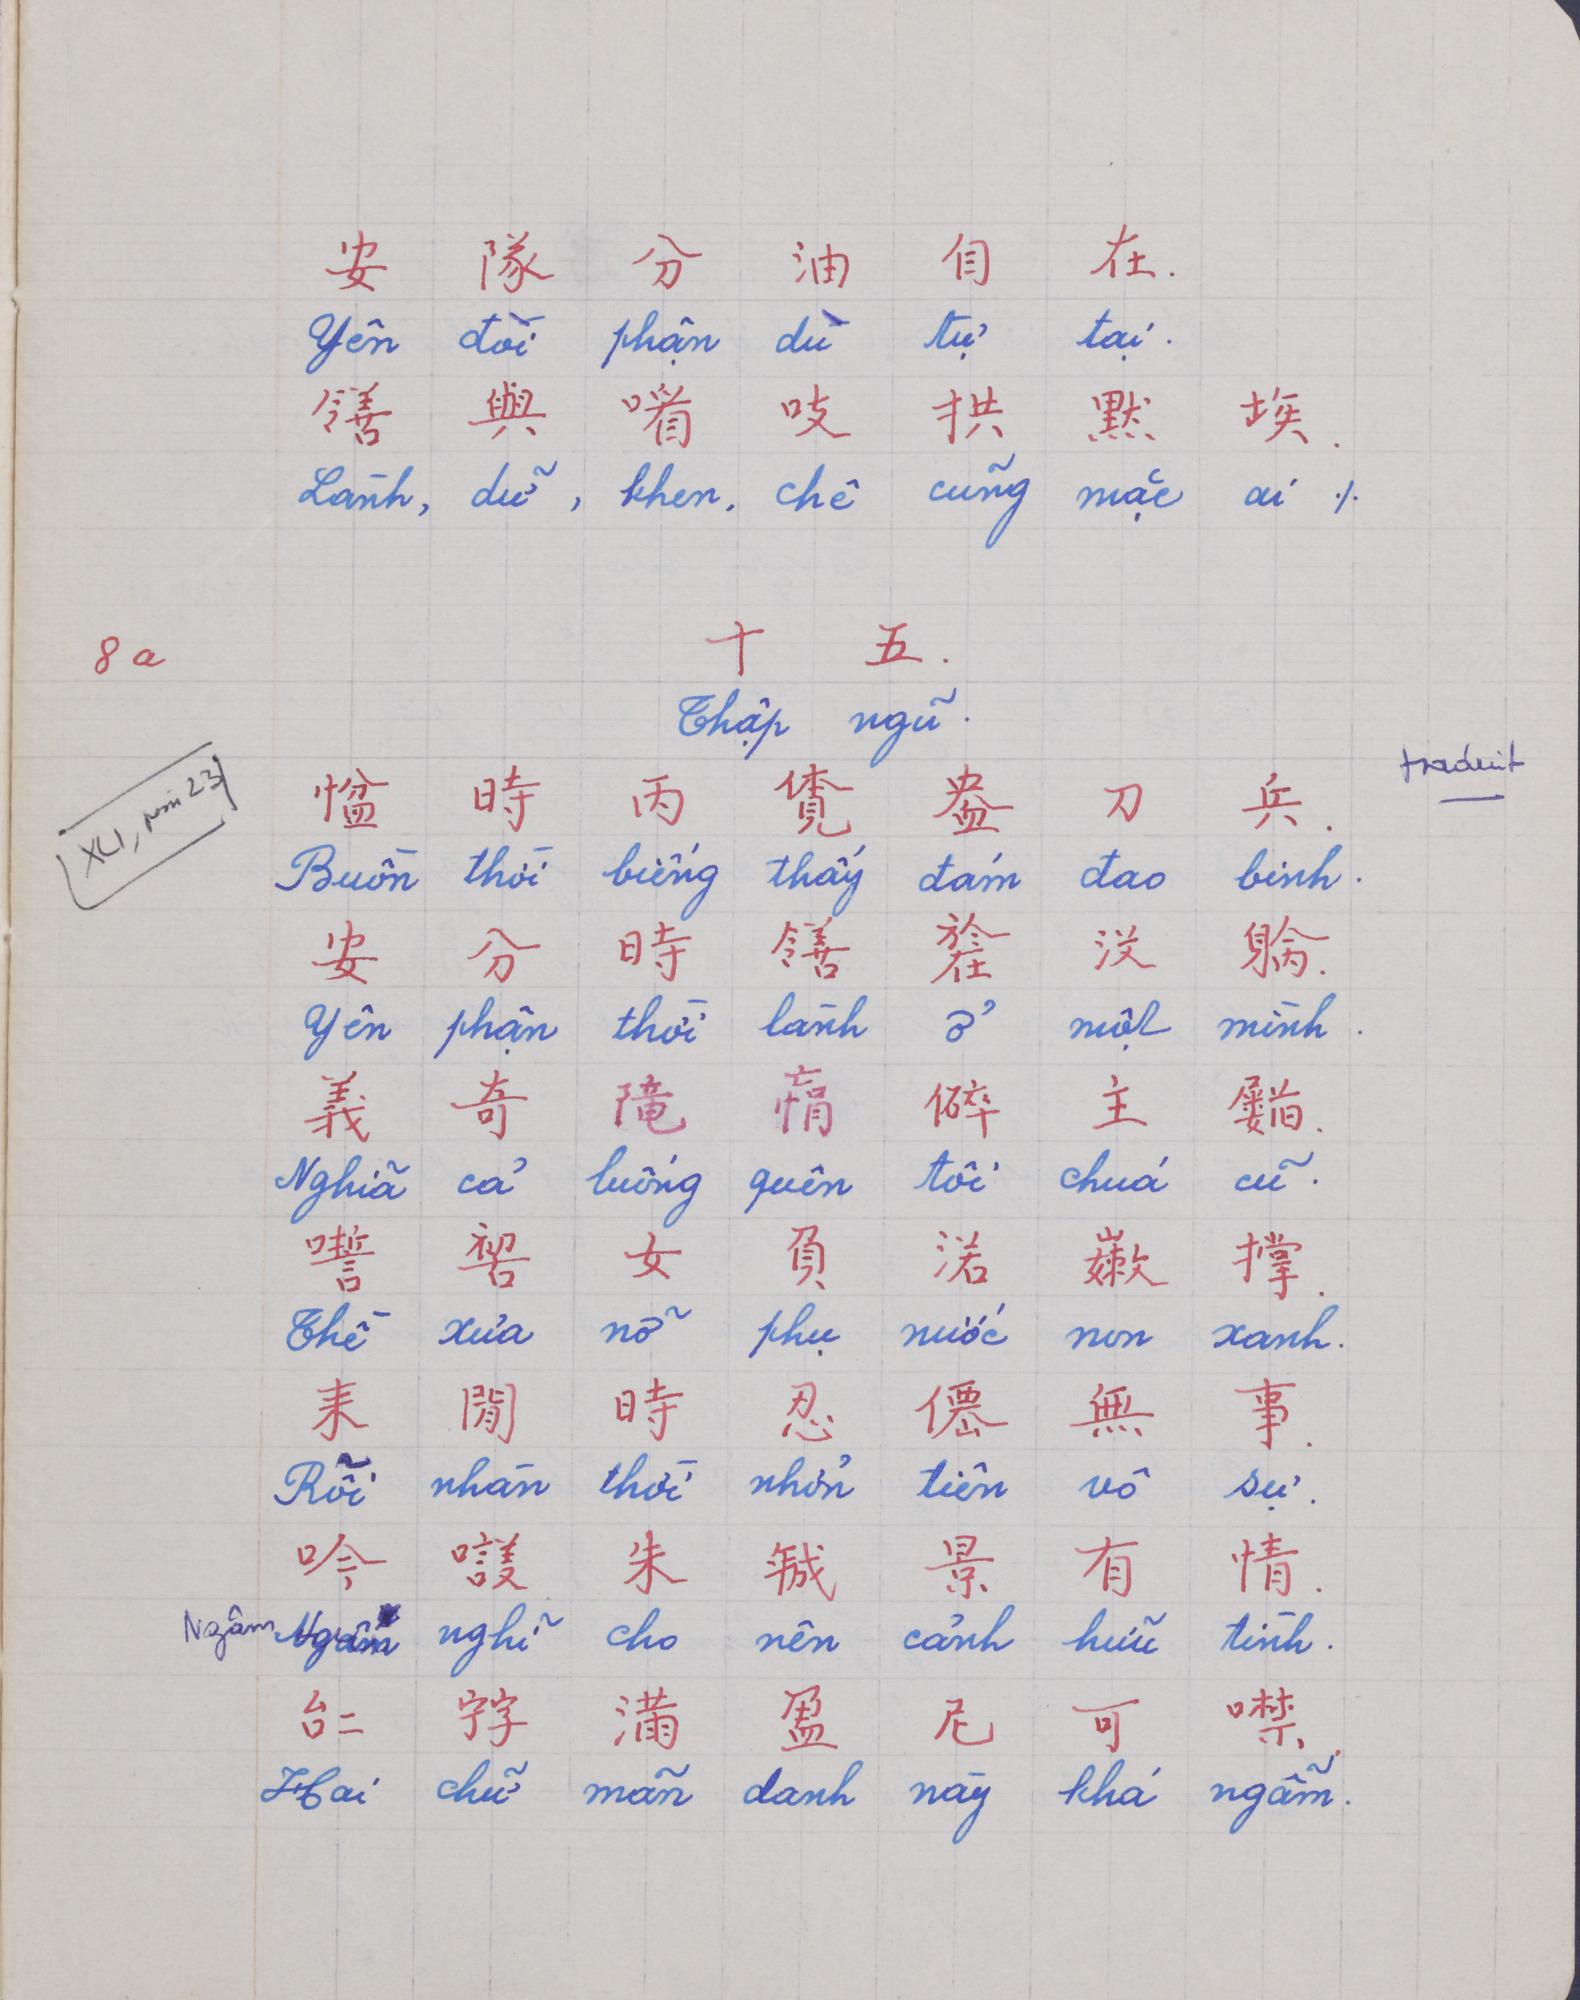 安 隊 分 油 自 在.
Yên đòi phận dù tự tại.
與 吱 拱 默 埃.
Lành, dữ, khen, chê cũng mặc ai ./.
8a
十 五.
Thập ngũ.
traduit
XLI, nôm 23
時 丙 𧡊 盎 刀 兵.
Buồn thời biếng thấy đám đao binh.
安 分 時 𠃣 没 𨉓.
Yên phận thời lành ở một mình.
義 奇 隴 𠅳 碎 主 𡳰.
Nghĩa cả luống quên tôi chuá cũ.
誓 𠸗 女 負 渃 𡽫 撑.
Thề xưa nỡ phụ nước non xanh.
耒 閒 時 忍 僊 無 事.
Rỗi nhàn thời nhởn tiên vô sự.
吟 𠾦 朱 𢧚 景 有 情.
Ngâm Ngâm nghĩ cho nên cảnh hữu tình.
𠄩 𡨸 滿 盈 尼 可 噤.
Hai chữ mãn danh này khá ngẫm.